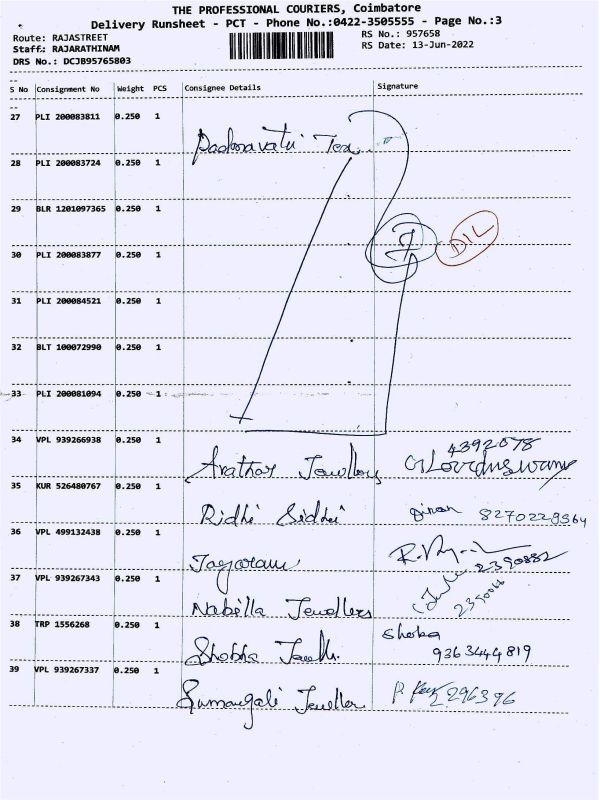 THE PROFESSIONAL COURIERS, Coimbatore
Delivery Runsheet - PCT - Phone No.:0422-3505555 - Page No.:3
Route: RAJASTREET
RS No.: 957658
Staff: RAJARATHINAM
RS Date: 13-Jun-2022
DRS No.: DCJB95765803
S No Consignment No Weight PCS Consignee Details Signature
27 PLI 200083811 0.250 1
Padmavati Tex
28 PLI 200083724 0.250 1
29 BLR 1201097365 0.250 1
DIL
30 PLI 200083877 0.250 1
31 PLI 200084521 0.250 1
32 BLT 100072990 0.250 1
33 PLI 200081094 0.250 1
34 VPL 939266938 0.250 1
Jewellery 4392078
35 KUR 526480767 0.250 1
Ridhi Sidhi 8270229564
36 VPL 499132438 0.250 1
Jayaram 2390882
37 VPL 939267343 0.250 1
Nabilla Jewellers
38 TRP 1556268 0.250 1
Shobha Shoba 9363444819
39 VPL 939267337 0.250 1
Sumangali Jeweller 2296396